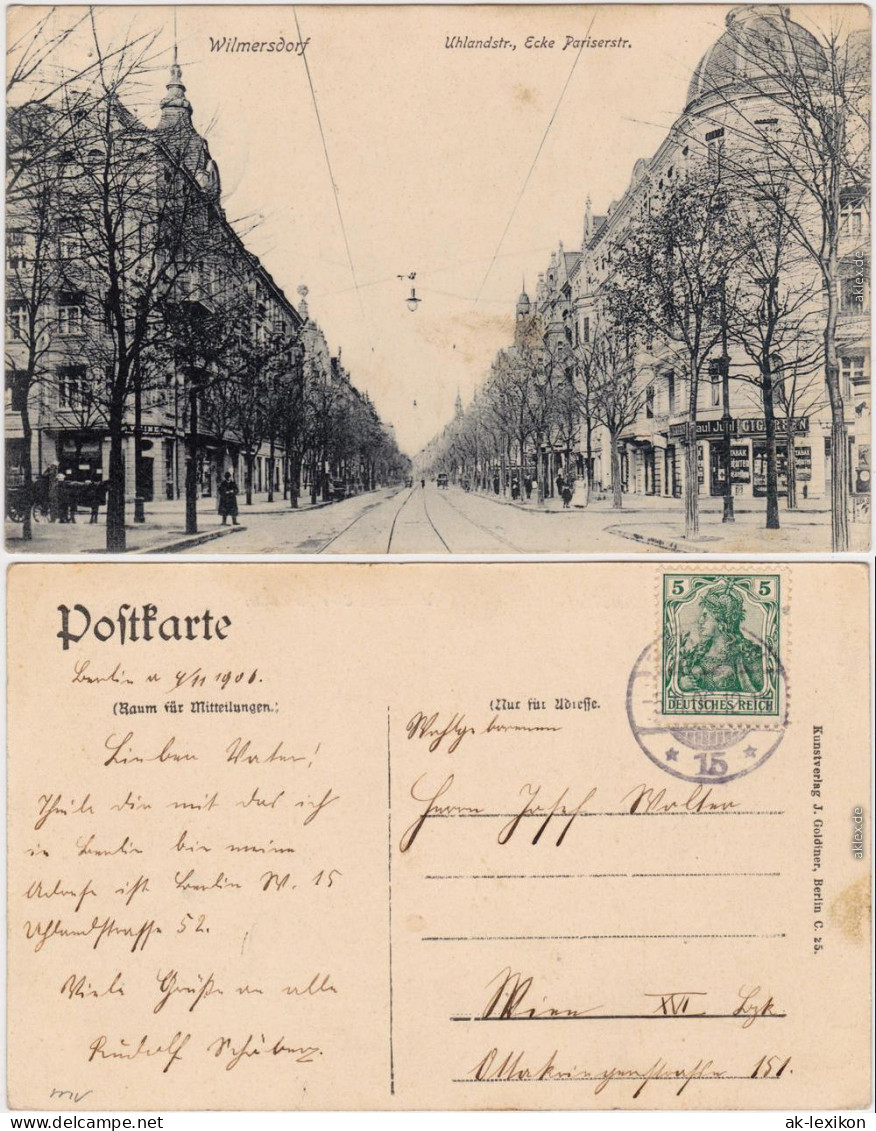 Wilmersdorf
Uhlandstr., Ecke Pariserstr.
Paul Juhl CIGARREN
TABAK
TABAK
aklex.de
Postkarte
Berlin 4/11 1906.
(Raum für Mitteilungen.)
Lieben Vater!
Theile dir mit das ich
in Berlin bin meine
Adresse ist Berlin W. 15
Uhlandstrasse 52.
Viele Grüße an alle
Rudolf
(Nur für Adresse.
5 5
DEUTSCHES REICH
* 15 *
Wohlgeborenen
Herrn Josef Walter
Wien XVI Bzk
Ottakringerstraße 151.
Kunstverlag J. Goldiner, Berlin C. 25.
aklex.de
ak-lexikon